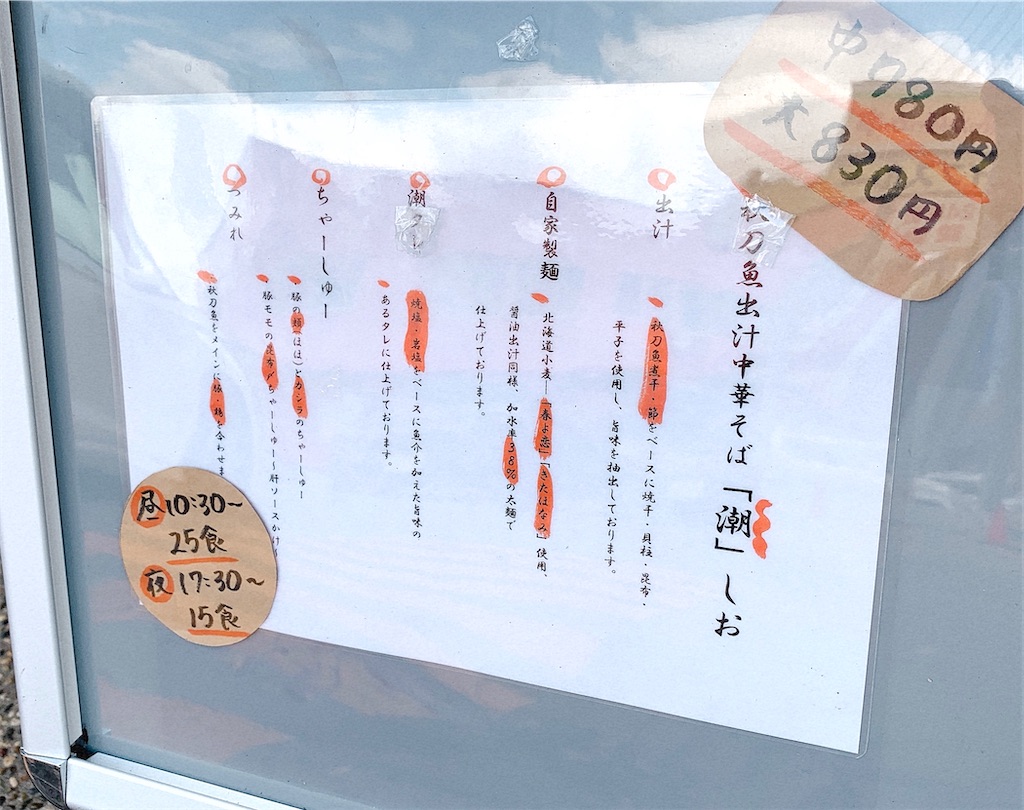 中 780円
大 830円
秋刀魚出汁中華そば「潮」しお
出汁
秋刀魚煮干・節をベースに焼干・貝柱・昆布・
平子を使用し、旨味を抽出しております。
自家製麺
北海道小麦―「春よ恋」「きたほなみ」使用、
醤油出汁同様、加水率38%の太麺で
仕上げております。
潮タレ
焼塩・岩塩をベースに魚介を加えた旨味の
あるタレに仕上げております。
ちゃーしゅー
豚の頬(ほほ)とカシラのちゃーしゅー
豚モモの昆布〆ちゃーしゅー〜肝ソースかけ
つみれ
秋刀魚をメインに
を合わせま
昼 10:30〜
25食
夜 17:30〜
15食